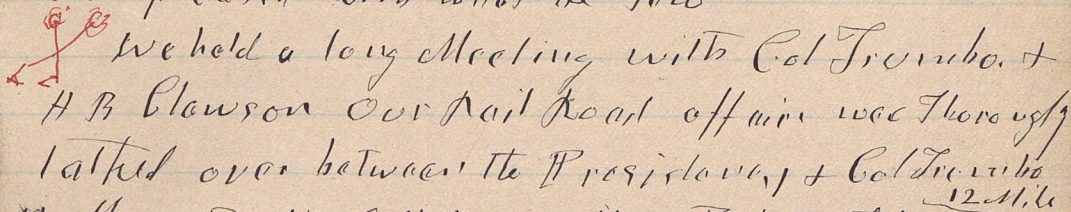 We held a long Meeting with Col Trumbo. &
H B Clawson Our Rail Road affairs was Thorougly
talked over between the Presidency & Col Trumbo
12 Mile